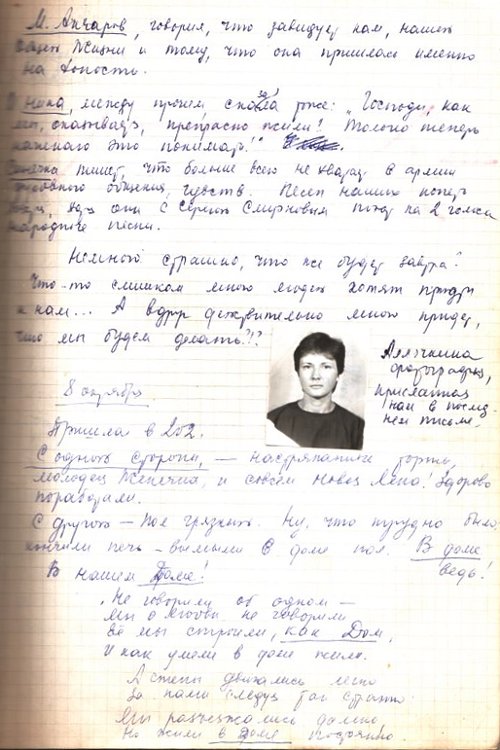 М. Анчаров, говорил, что завидует нам, нашей
жизни и тому, что она пришлась именно
на юность.
Нина, между прочим сказала уже: "Господи, как
мы, оказывается, прекрасно жили! Только теперь
начинаю это понимать!"
пишет, что больше всего не хватает в армии
общения, чувств. Песен наших теперь
они с Сергеем Смирновым поют на 2 голоса
народные песни.
Немного страшно, что же будет завтра?
Что-то слишком много людей хотят придти
к нам... А вдруг действительно много придет,
что мы будем делать?!?
Аллочкина
фотография,
присланная
нам в послед
нем письме.
8 октября
Пришла в 202.
С одной стороны, — торты,
молодец Женечка, и совсем новое Лена! Здорово
поработали.
С другой — пол грязный. Ну, что трудно было,
кончили печь — вымыли в доме пол. В доме
ведь!
В нашем Доме!
"Не говорили об одном —
Мы о любви не говорили
Её мы строили, как Дом,
И как умели в доме жили.
А стены двигались легко
За нами следуя так странно
Мы разъезжались далеко
Но жили в доме постоянно